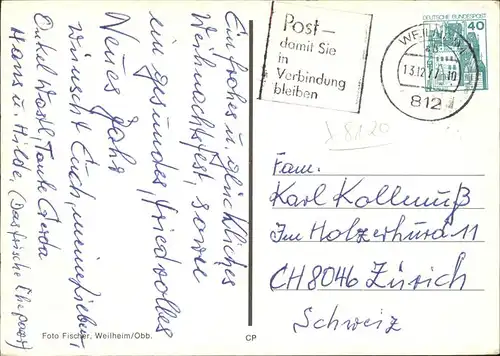 Ein frohes u. glückliches
Weihnachtsfest, sowie
ein gesundes, friedvolles
Neues Jahr
wünscht Euch, meine Lieben,
Onkel Wastl, Tante Gerda
Hans u. Hilde, (Das frische Ehepaar)
Foto Fischer, Weilheim/Obb.
CP
Post –
damit Sie
in
Verbindung
bleiben
DEUTSCHE BUNDESPOST
40
13.12.77 - 10
812
D 8120
Fam.
Karl Kollenuß
Im Holzerhurd 11
CH 8046 Zürich
Schweiz